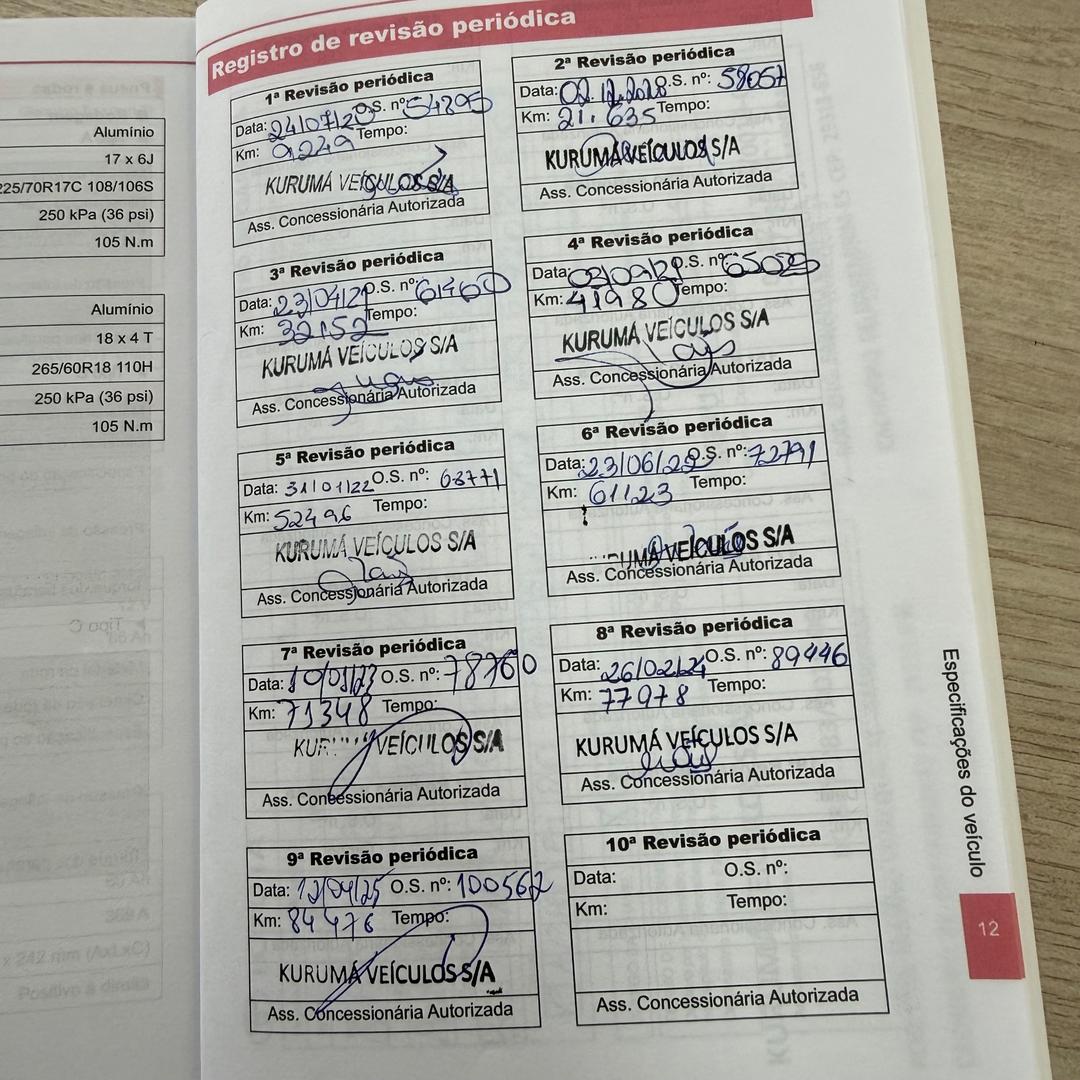 Alumínio
17 x 6J
225/70R17C 108/106S
250 kPa (36 psi)
105 N.m
Alumínio
18 x 4 T
265/60R18 110H
250 kPa (36 psi)
105 N.m
Registro de revisão periódica
1ª Revisão periódica
Data: 24/07/20 O.S. nº: 54895
Km: 9249 Tempo:
KURUMÁ VEÍCULOS S/A
Ass. Concessionária Autorizada
2ª Revisão periódica
Data: O.S. nº: 58057
Km: 21.635 Tempo:
KURUMÁ VEÍCULOS S/A
Ass. Concessionária Autorizada
3ª Revisão periódica
Data: 23/04/21 O.S. nº: 61460
Km: 32152 Tempo:
KURUMÁ VEÍCULOS S/A
Ass. Concessionária Autorizada
4ª Revisão periódica
Data: 03/09/21 O.S. nº:
Km: 41980 Tempo:
KURUMÁ VEÍCULOS S/A
Ass. Concessionária Autorizada
5ª Revisão periódica
Data: 31/01/22 O.S. nº: 68771
Km: 52496 Tempo:
KURUMÁ VEÍCULOS S/A
Ass. Concessionária Autorizada
6ª Revisão periódica
Data: O.S. nº: 72791
Km: 61123 Tempo:
VEÍCULOS S/A
Ass. Concessionária Autorizada
7ª Revisão periódica
Data: O.S. nº: 78760
Km: 71348 Tempo:
VEÍCULOS S/A
Ass. Concessionária Autorizada
8ª Revisão periódica
Data: 26/02/24 O.S. nº: 89446
Km: 77978 Tempo:
KURUMÁ VEÍCULOS S/A
Ass. Concessionária Autorizada
9ª Revisão periódica
Data: 12/04/25 O.S. nº: 100562
Km: 84476 Tempo:
KURUMÁ VEÍCULOS S/A
Ass. Concessionária Autorizada
10ª Revisão periódica
Data: O.S. nº:
Km: Tempo:
Ass. Concessionária Autorizada
Especificações do veículo
12